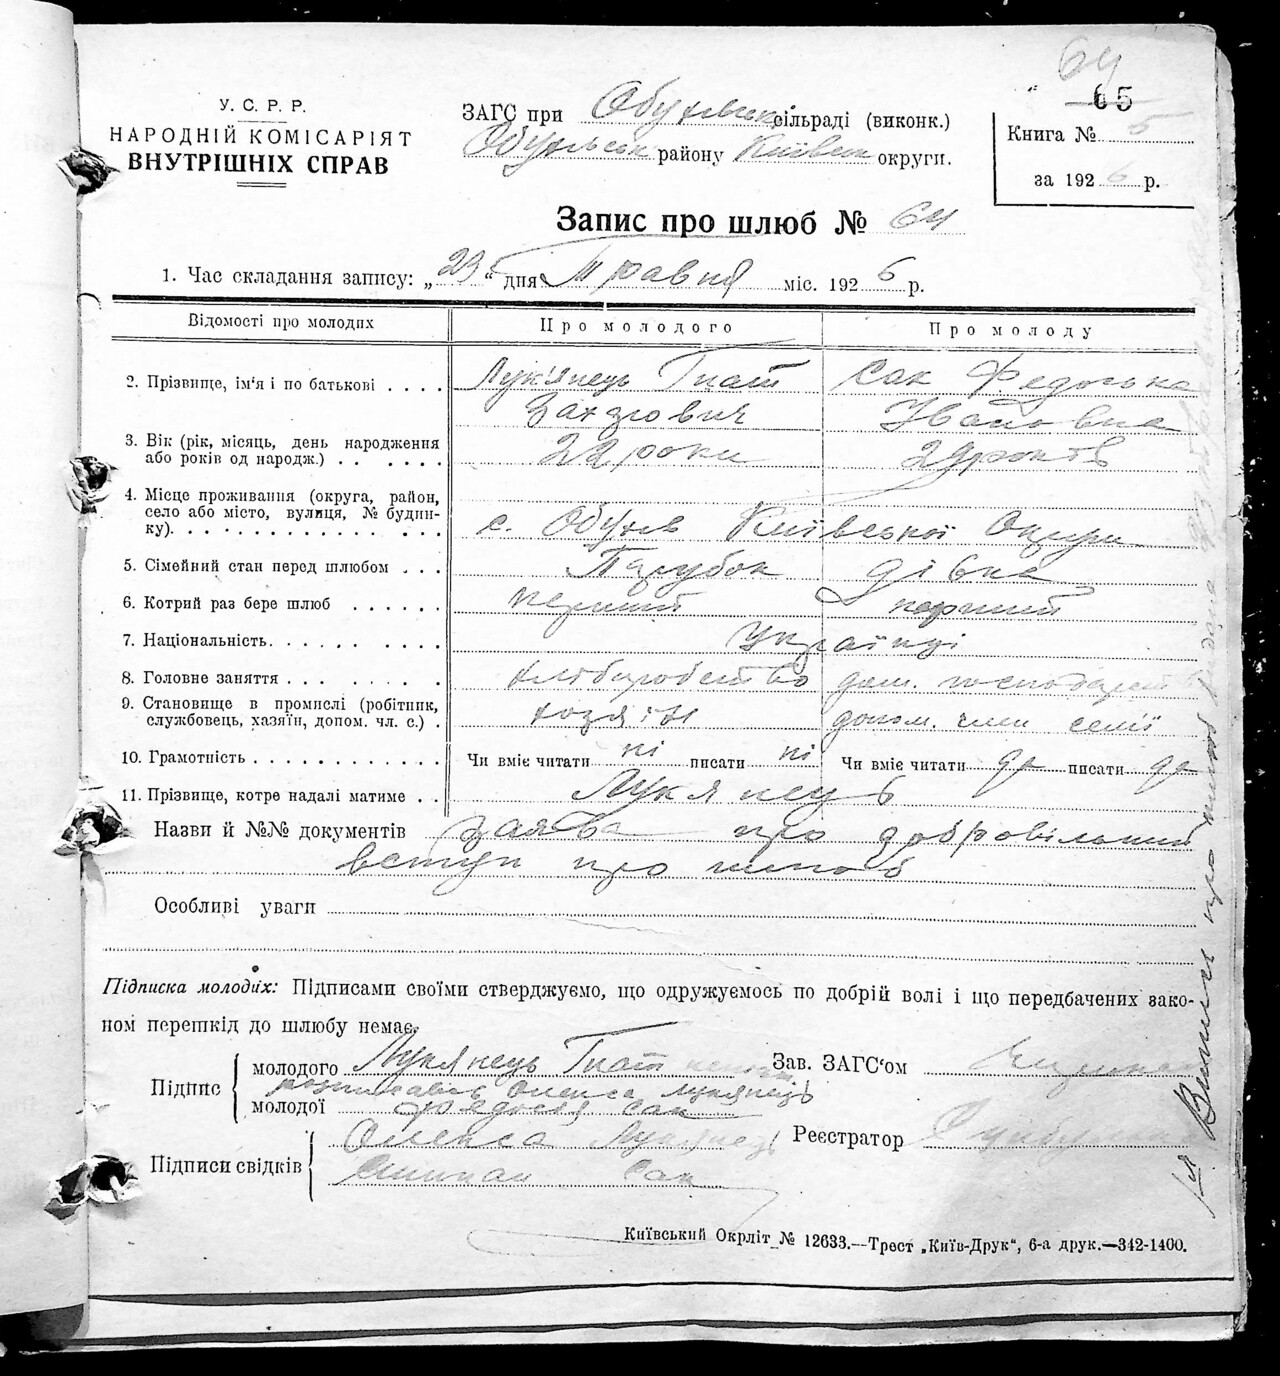 64
65
У. С. Р. Р.
НАРОДНІЙ КОМІСАРІЯТ
ВНУТРІШНІХ СПРАВ
ЗАГС при Обухівськ сільраді (виконк.)
Обухівськ району Київськ округи.
Книга № 5
за 1926 р.
Запис про шлюб № 64
1. Час складання запису: „29“ дня Травня міс. 1926 р.
Відомості про молодих Про молодого Про молоду
2. Прізвище, ім'я і по батькові . . . . Лук'янець Гнат Сак Федоська
Захарович Івановна
3. Вік (рік, місяць, день народження
або років од народж.) . . . . . . 22 роки 29 років
4. Місце проживання (округа, район,
село або місто, вулиця, № будин-
ку). . . . . . . . . . . . . . с. Обухів Київської Округи
5. Сімейний стан перед шлюбом . . . Парубок дівка
6. Котрий раз бере шлюб . . . . . . перший перший
7. Національність. . . . . . . . . . Українці
8. Головне заняття . . . . . . . . хліборобство дом. господарств
9. Становище в промислі (робітник,
службовець, хазяїн, допом. чл. с.) . хозяїн допом. член семії
10. Грамотність . . . . . . . . . . . Чи вміє читати ні писати ні Чи вміє читати да писати да
11. Прізвище, котре надалі матиме . . Лукянець
Назви й №№ документів заява про добровільний
вступ про шлюб
Особливі уваги
Підписка молодих: Підписами своїми стверджуємо, що одружуємось по добрій волі і що передбачених зако-
ном перешкід до шлюбу немає.
Підпис молодого Лукянець Гнат
розписавсь Олекса Лукянець
молодої Федося Сак
Зав. ЗАГС'ом
Підписи свідків Олекса Лукянець
Сак
Реєстратор
Київський Окрліт № 12633.—Трест „Київ-Друк“, 6-а друк.—342-1400.
про шлюб